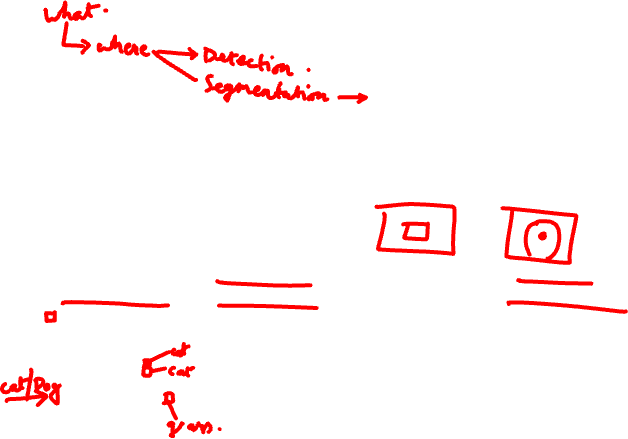 What.
where Detection.
Segmentation
cat
cat
Cat/Dog